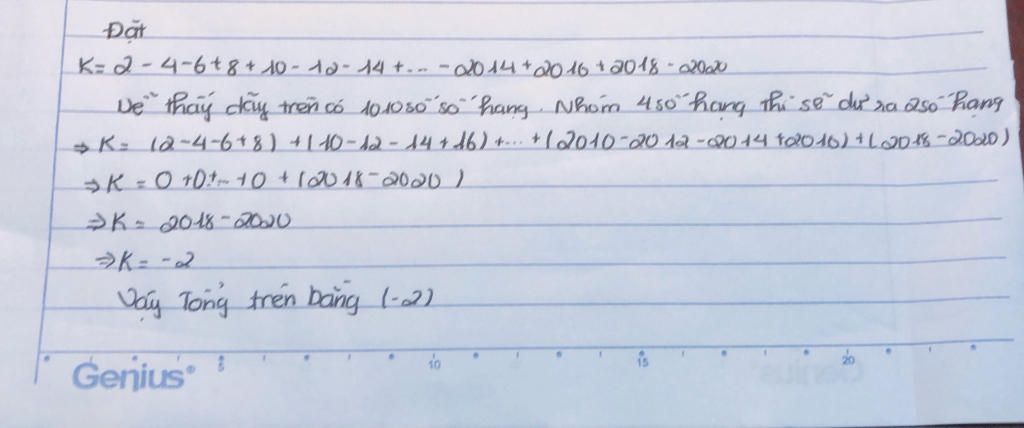 Đặt
K= 2 - 4 - 6 + 8 + 10 - 12 - 14 + ... - 2014 + 2016 + 2018 - 2020
Dễ thấy dãy trên có 1010 số số hạng. Nhóm 4 số hạng thì sẽ dư ra 2 số hạng
⇒ K = (2-4-6+8) + (10-12-14+16) + ... + (2010-2012-2014+2016) + (2018-2020)
⇒ K = 0 + 0 + ... + 0 + (2018-2020)
⇒ K = 2018 - 2020
⇒ K = -2
Vậy Tổng trên bằng (-2)
5 10 15 20
Genius